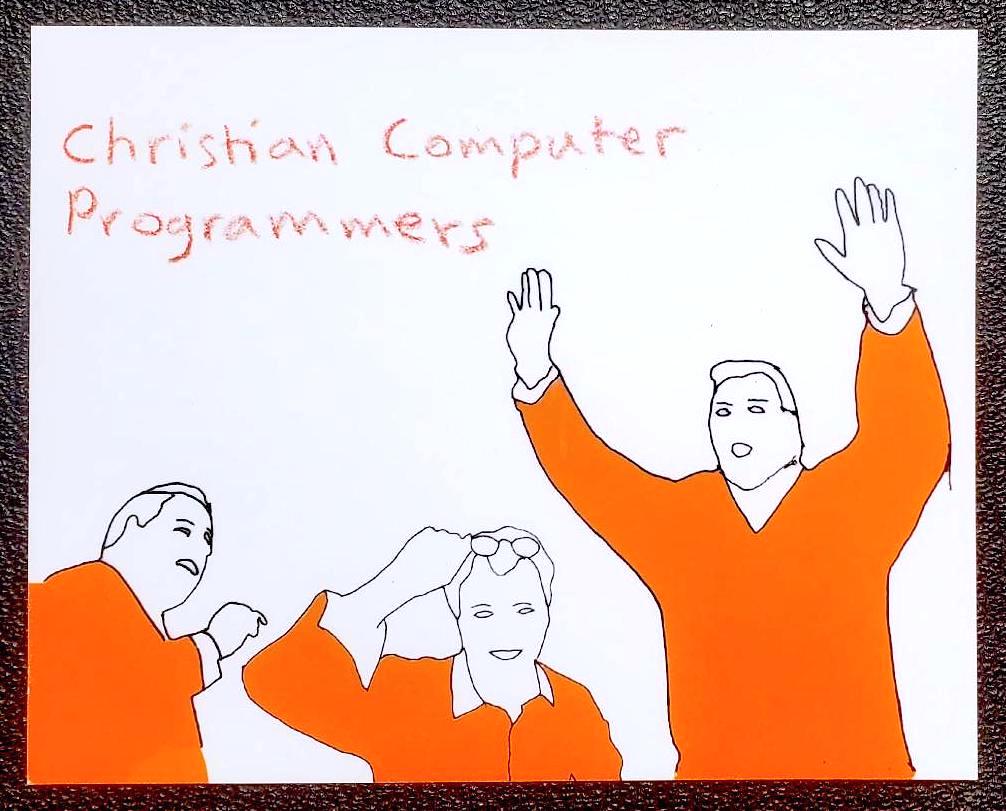 Christian Computer
Programmers